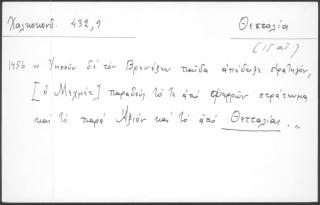 Χαλκοκονδ. 432,9
Θεσσαλία
(15 αἰ.)
1456 « Ἰησοῦν δὲ τὸν Βρενέζεω παῖδα ἀπέδειξε στρατηγόν,
[ὁ Μεχμέτ] παραδοὺς τό τε ἀπὸ Φερρῶν στράτευμα
καὶ τὸ παρὰ Ἀξιὸν καὶ τὸ ἀπὸ Θετταλίας. „